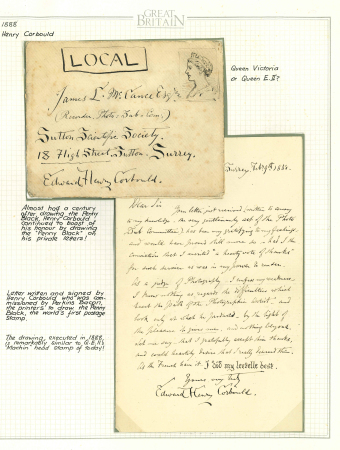 GREAT BRITAIN
1888
Henry Corbould
LOCAL
Queen Victoria
or Queen E.II?
James L. McCance Esq.
(Recorder, Photo. Sub-Com.)
Sutton Scientific Society.
18 High Street, Sutton,
Surrey.
Edward Henry Corbould.
Almost half a century
after drawing the Penny
Black, Henry Corbould
continued to boast of
his honour by drawing
the "Penny Black" on
his private letters!
Letter written and signed by
Henry Corbould who was com-
missioned by Perkins Bacon,
the printers to draw the Penny
Black, the world's first postage
stamp.
The drawing, executed in 1888,
is remarkably similar to Q.E.II's
"Machin" head stamp of today!
Surrey, Feb
Dear Sir
Your letter just received, written to convey
to my knowledge the very gentlemanly act of the "Photo
Sub Committee", has been very gratifying to my feelings,
and would have proved still more so had I the
conviction that I merited "a hearty vote of thanks"
for such service as was in my power to render.
As a judge of Photography I confess my weakness,
I know nothing as regards the difficulties which
the Photographic Artist, and
look only at what he produced, by the light of
the pleasure it gives me, and nothing beyond.
Let me say that I gratefully accept these thanks,
and could heartily desire that I really deserved them,
As the French have it. I did my levelle best.
Yours very truly
Edward Henry Corbould.